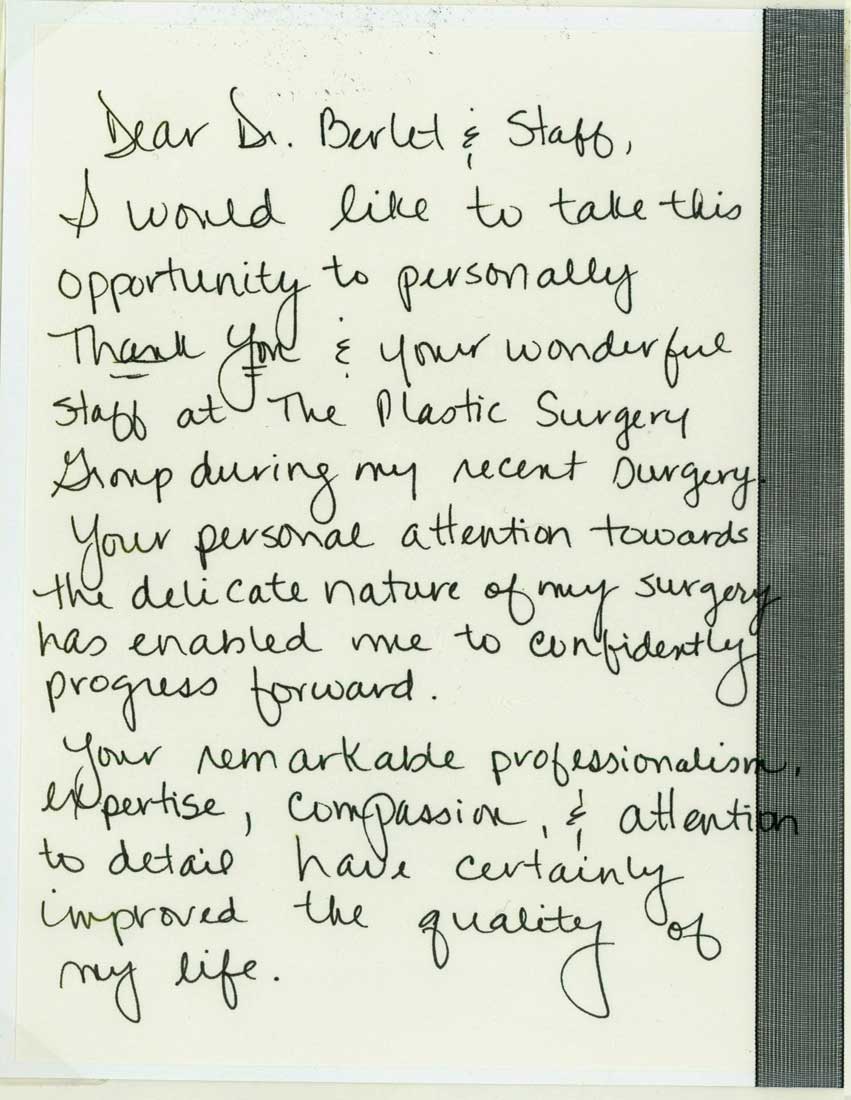 Dear Dr. Berlet & Staff,
I would like to take this
opportunity to personally
Thank You & your wonderful
staff at The Plastic Surgery
Group during my recent surgery.
Your personal attention towards
the delicate nature of my surgery
has enabled me to confidently
progress forward.
Your remarkable professionalism,
expertise, compassion, & attention
to detail have certainly
improved the quality of
my life.